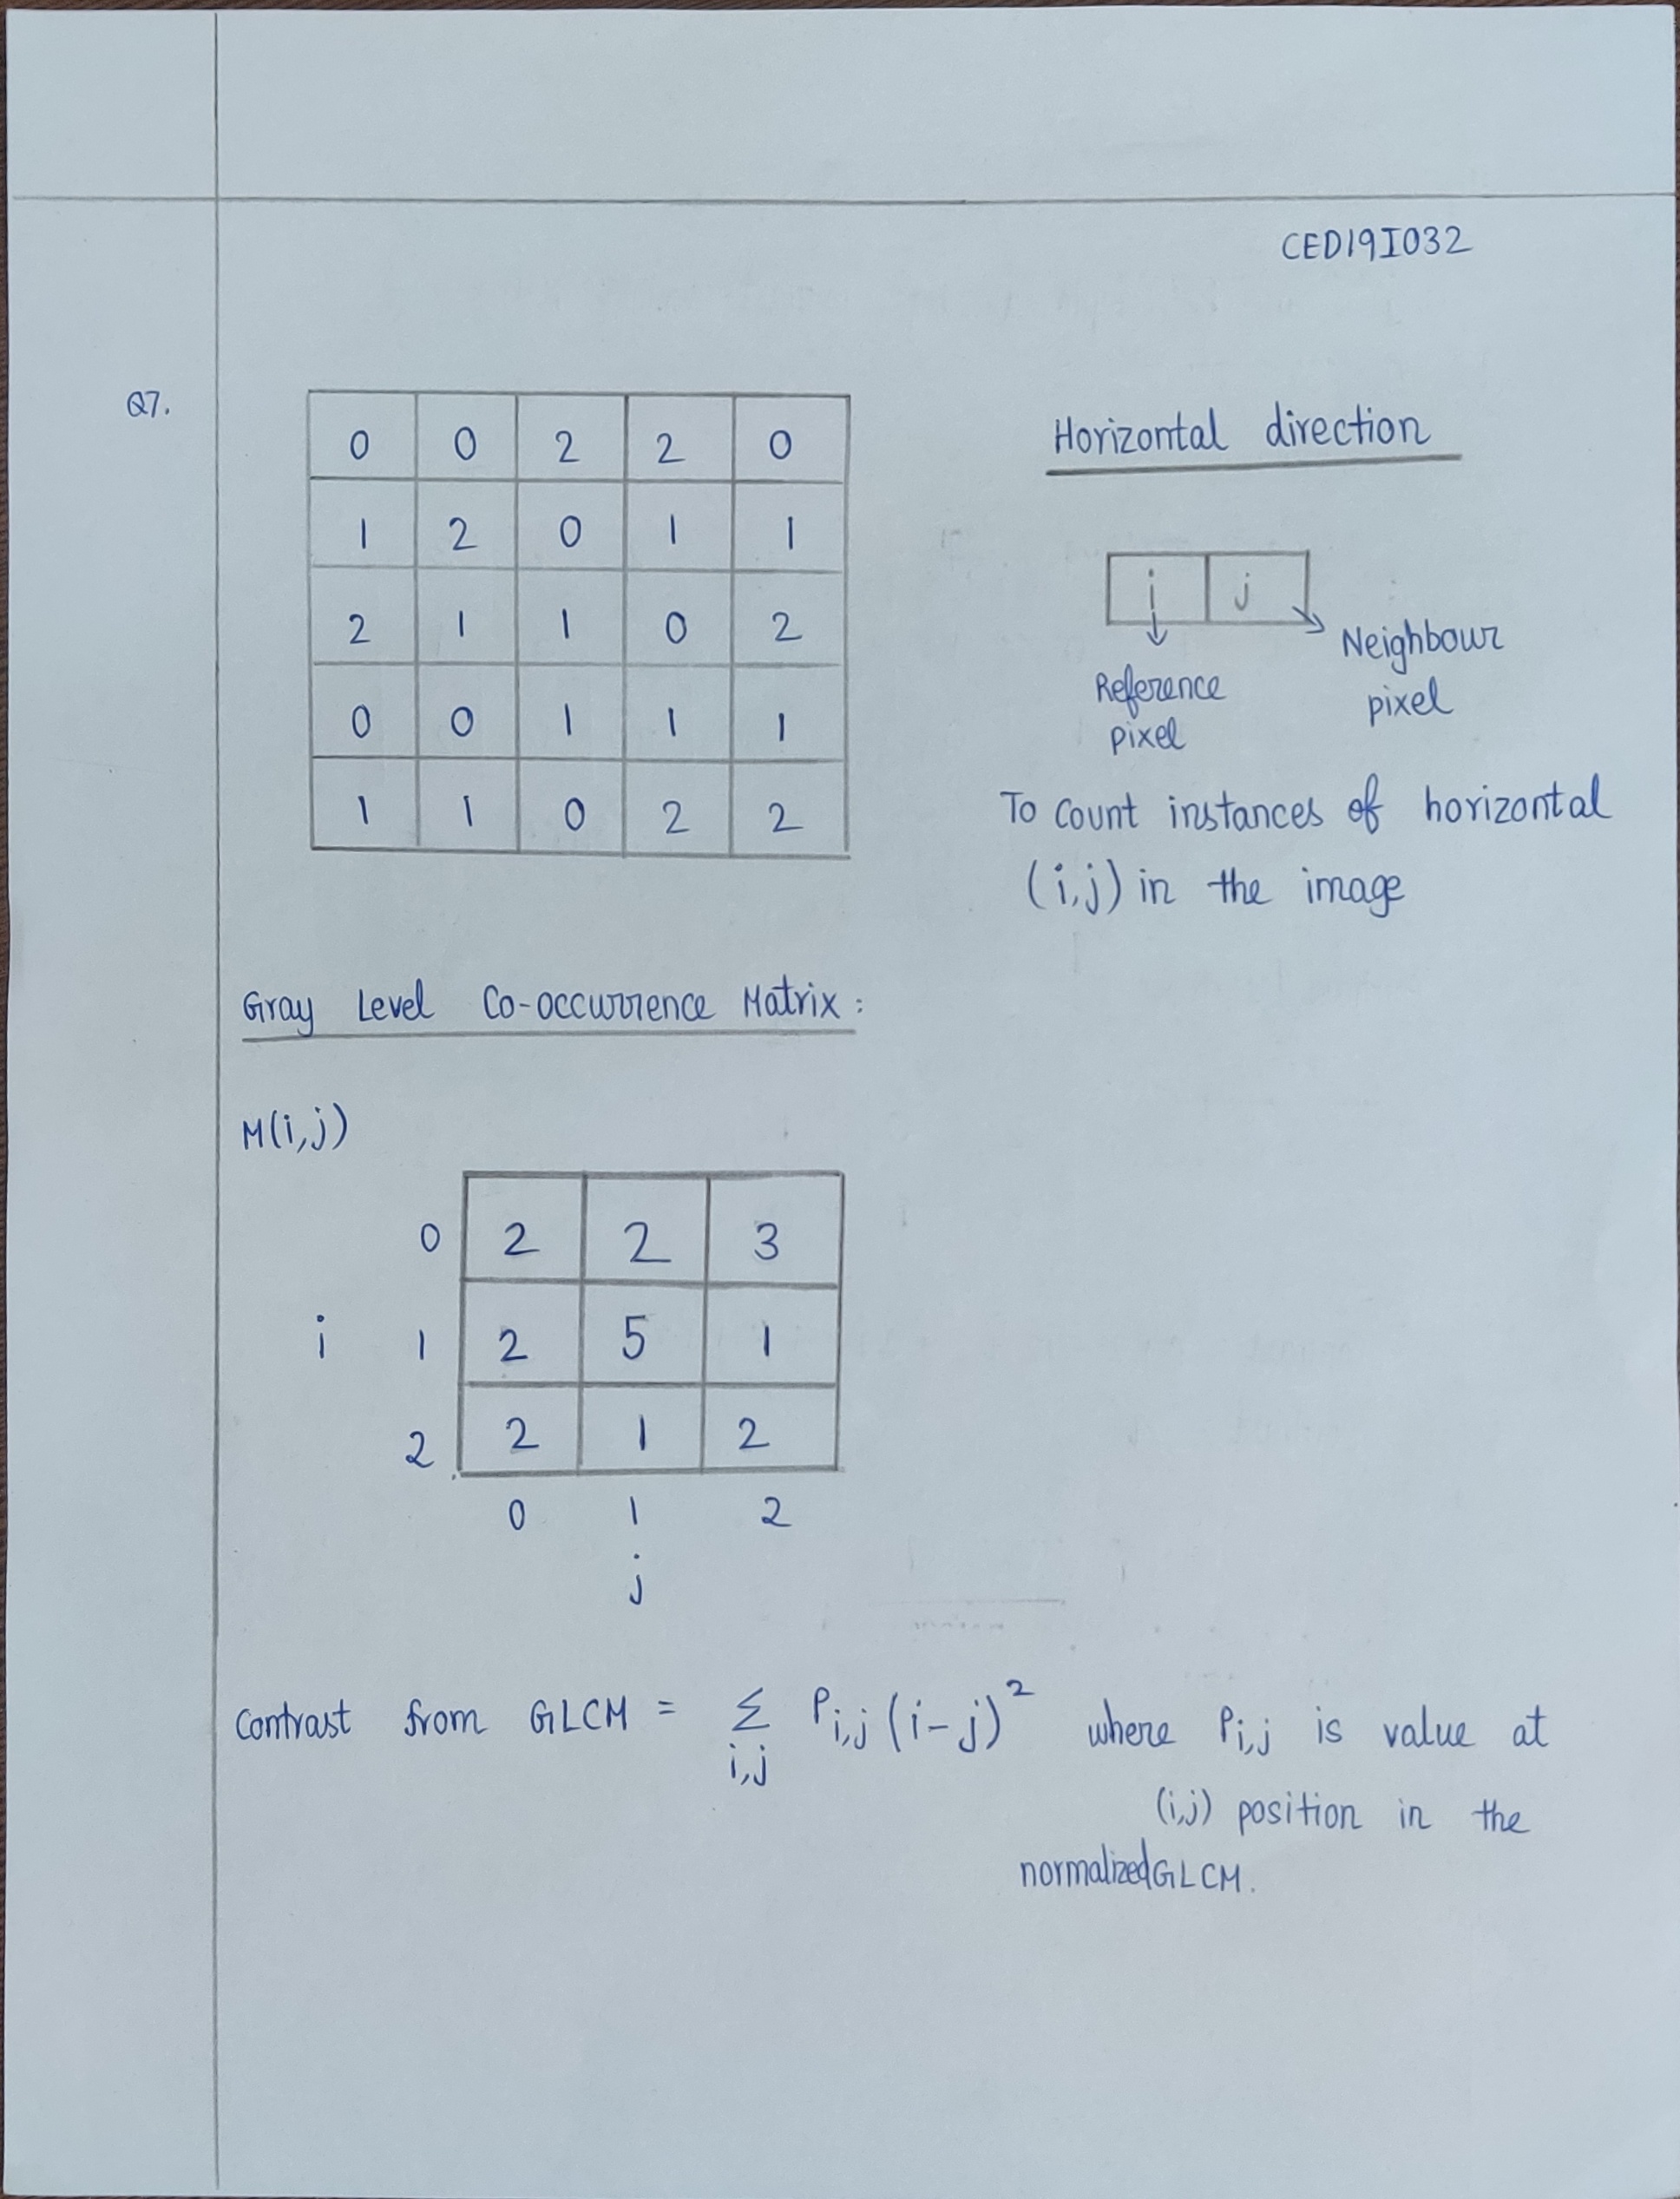 CED19I032
Q7.
0 0 2 2 0
1 2 0 1 1
2 1 1 0 2
0 0 1 1 1
1 1 0 2 2
Horizontal direction
i j
Reference
pixel
Neighbour
pixel
To count instances of horizontal
(i,j) in the image
Gray Level Co-occurrence Matrix:
M(i,j)
0 2 2 3
i 1 2 5 1
2 2 1 2
0 1 2
j
Contrast from GLCM = Σ Pi,j (i-j)² where Pi,j is value at
i,j
(i,j) position in the
normalized GLCM.